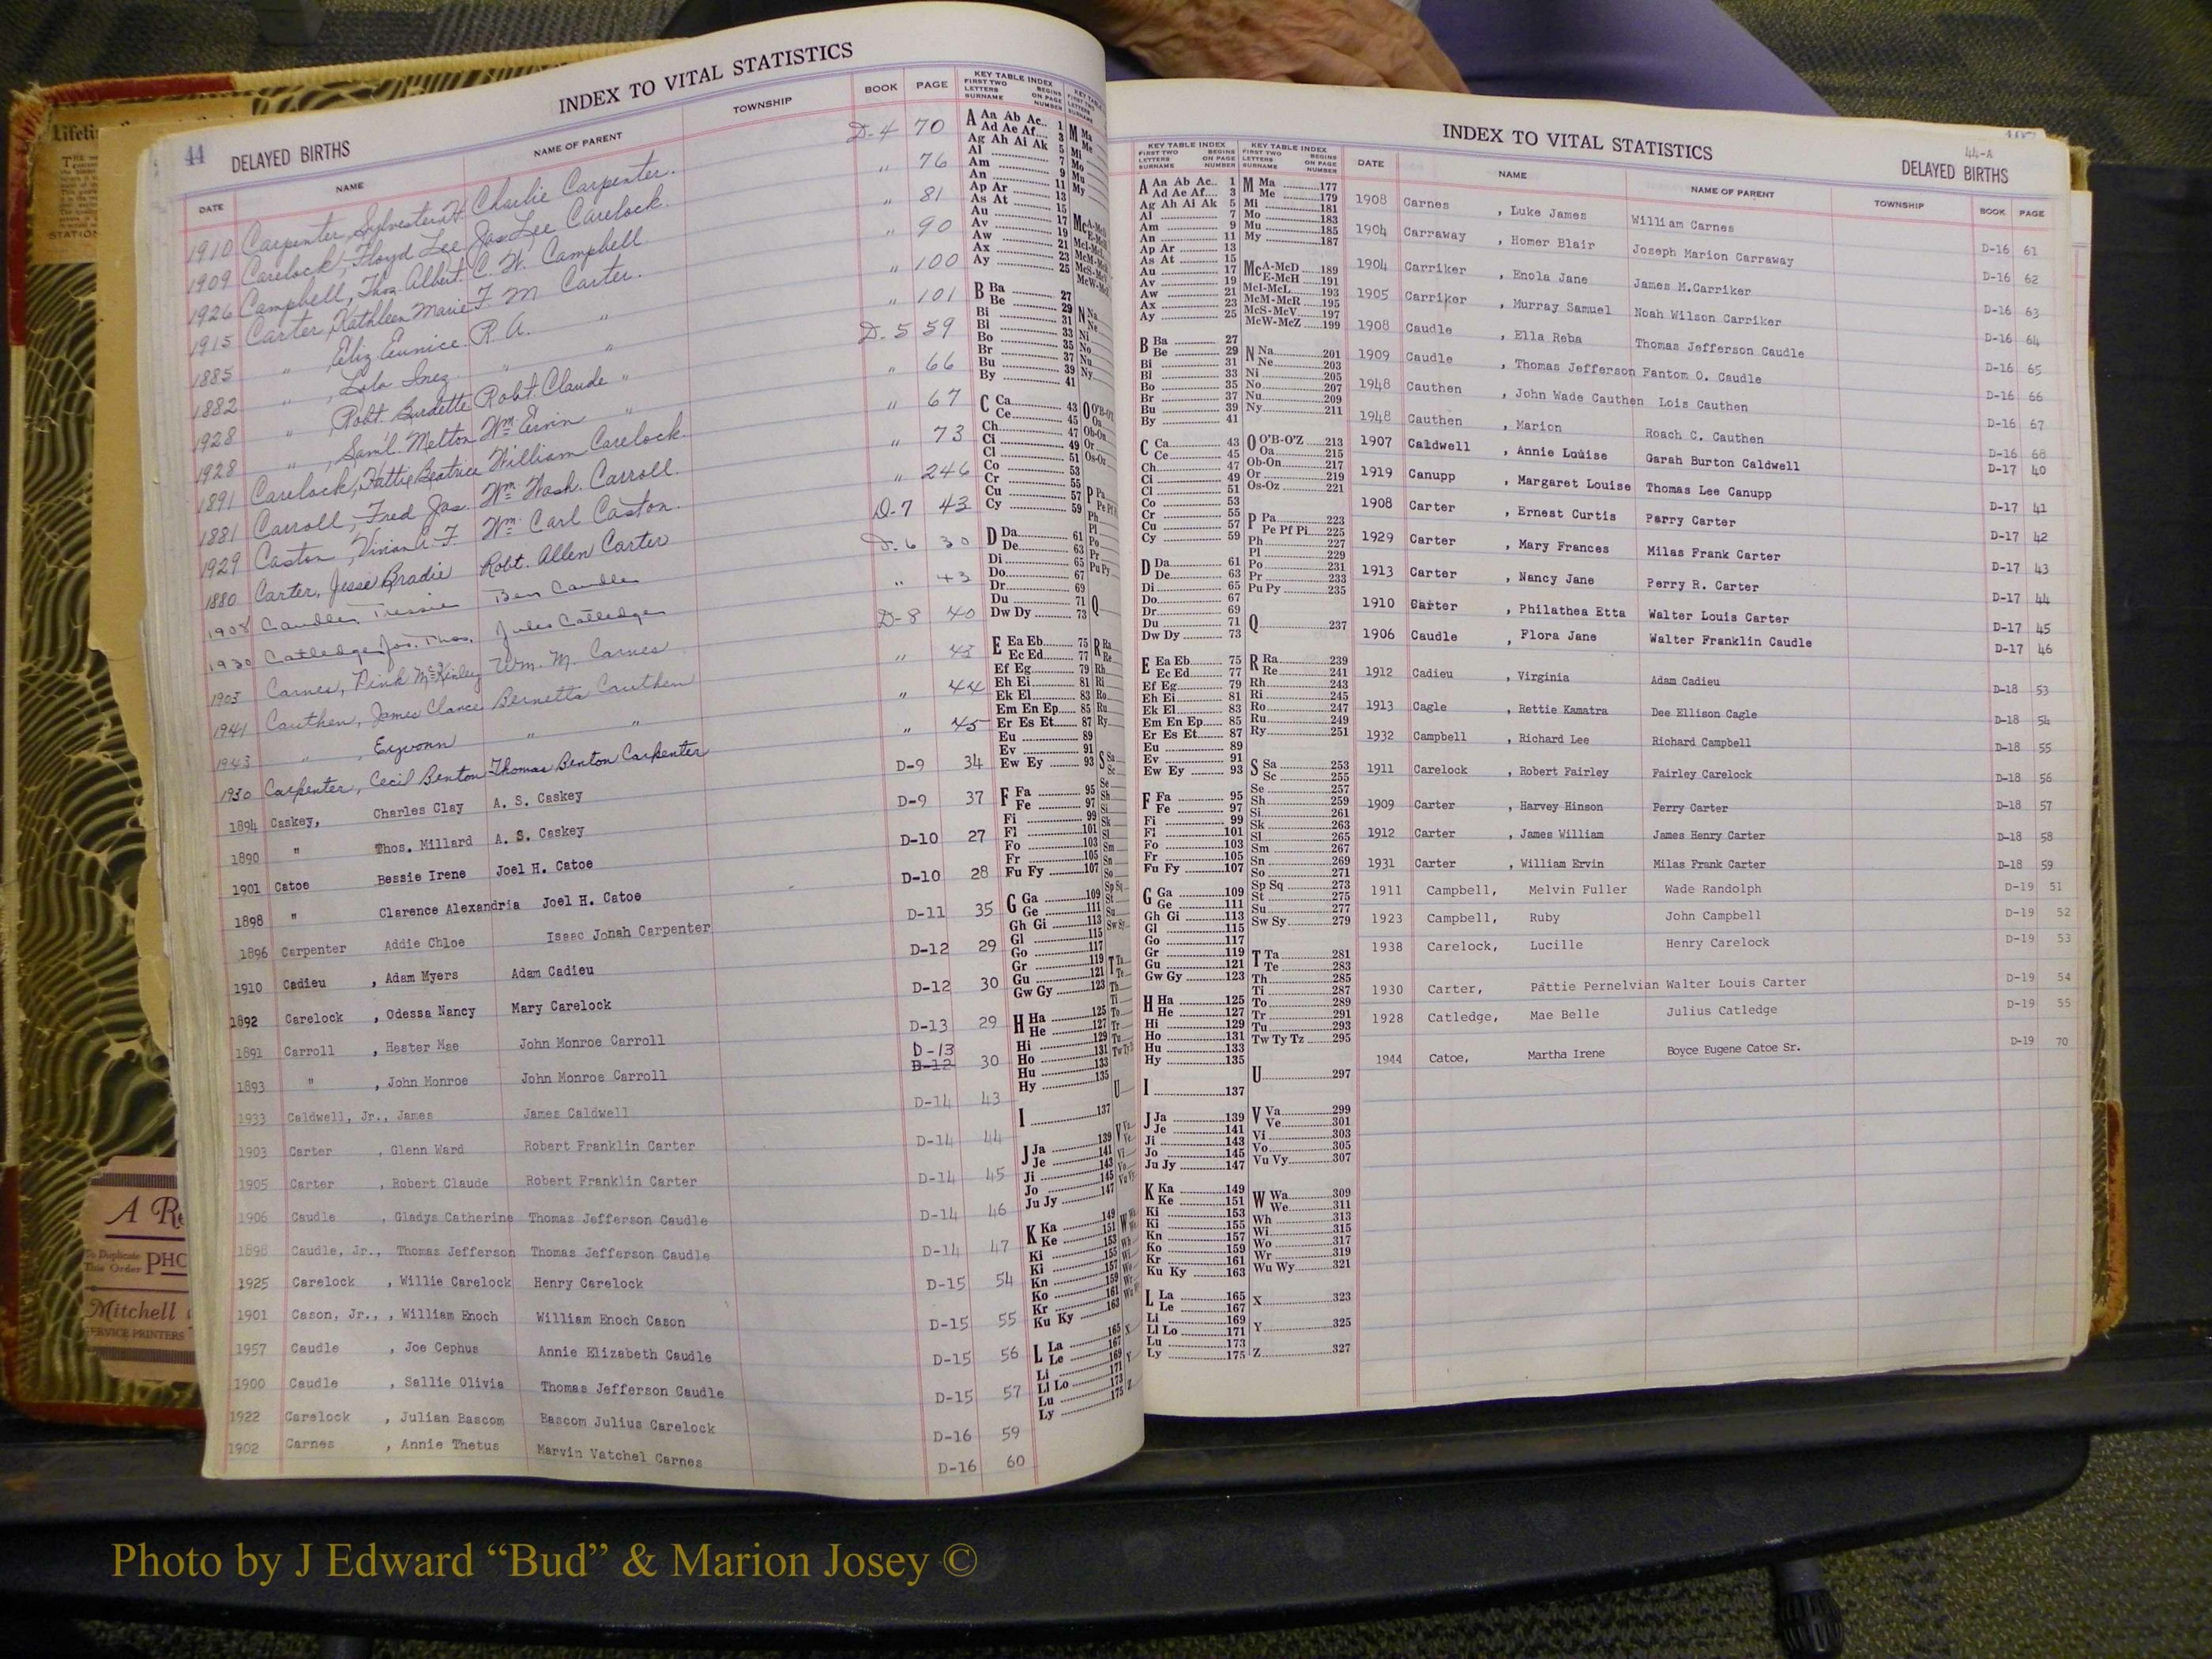 44 DELAYED BIRTHS INDEX TO VITAL STATISTICS
DATE NAME NAME OF PARENT TOWNSHIP BOOK PAGE
1910 Carpenter, Sylvester H. Charlie Carpenter. D-4 70
1909 Carelock, Floyd Lee Jas. Lee Carelock. " 76
1926 Campbell, Thos Albert. C. W. Campbell. " 81
1915 Carter, Kathleen Marie F. M Carter. " 90
1885 " , Eliz Eunice. R. A. " " 100
1882 " , Lola Inez. " " " 101
1928 " , Robt. Burdette Robt. Claude " D-5 59
1928 " , Saml. Melton Wm Ervin " " 66
1891 Carelock, Hattie Beatrice William Carelock. " 67
1881 Carroll, Fred Jas. Wm. Wash. Carroll. " 73
1929 Caston, A. F. Wm. Carl Caston. " 246
1880 Carter, Jesse Bradie Robt. Allen Carter D-7 43
1908 Caudle, Tressie Ben Caudle D-6 30
1930 Catledge, Jos. Thos. Jules Catledge " 43
1905 Carnes, Pink McKinley Wm. M. Carnes D-8 40
1941 Cauthen, James Clance Bernetta Cauthen " 43
1943 " , " " " 44
1930 Carpenter, Cecil Benton Thomas Benton Carpenter " 45
1894 Caskey, Charles Clay A. S. Caskey D-9 34
1890 " Thos. Millard A. S. Caskey D-9 37
1901 Catoe Bessie Irene Joel H. Catoe D-10 27
1898 " Clarence Alexandria Joel H. Catoe D-10 28
1896 Carpenter Addie Chloe Isaac Jonah Carpenter D-11 35
1910 Cadieu , Adam Myers Adam Cadieu D-12 29
1892 Carelock , Odessa Nancy Mary Carelock D-12 30
1891 Carroll , Hester Mae John Monroe Carroll D-13 29
1893 " , John Monroe John Monroe Carroll D-13 D-12 30
1933 Caldwell, Jr., James James Caldwell D-14 43
1903 Carter , Glenn Ward Robert Franklin Carter D-14 44
1905 Carter , Robert Claude Robert Franklin Carter D-14 45
1906 Caudle , Gladys Catherine Thomas Jefferson Caudle D-14 46
1898 Caudle, Jr., Thomas Jefferson Thomas Jefferson Caudle D-14 47
1925 Carelock , Willie Carelock Henry Carelock D-15 54
1901 Cason, Jr., , William Enoch William Enoch Cason D-15 55
1957 Caudle , Joe Cephus Annie Elizabeth Caudle D-15 56
1900 Caudle , Sallie Olivia Thomas Jefferson Caudle D-15 57
1922 Carelock , Julian Bascom Bascom Julius Carelock D-16 59
1902 Carnes , Annie Thetus Marvin Vatchel Carnes D-16 60
INDEX TO VITAL STATISTICS 44-A DELAYED BIRTHS
DATE NAME NAME OF PARENT TOWNSHIP BOOK PAGE
1908 Carnes , Luke James William Carnes D-16 61
1904 Carraway , Homer Blair Joseph Marion Carraway D-16 62
1904 Carriker , Enola Jane James M.Carriker D-16 63
1905 Carriker , Murray Samuel Noah Wilson Carriker D-16 64
1908 Caudle , Ella Reba Thomas Jefferson Caudle D-16 65
1909 Caudle , Thomas Jefferson Fantom O. Caudle D-16 66
1948 Cauthen , John Wade Cauthen Lois Cauthen D-16 67
1948 Cauthen , Marion Roach C. Cauthen D-16 68
1907 Caldwell , Annie Louise Garah Burton Caldwell D-17 40
1919 Canupp , Margaret Louise Thomas Lee Canupp D-17 41
1908 Carter , Ernest Curtis Perry Carter D-17 42
1929 Carter , Mary Frances Milas Frank Carter D-17 43
1913 Carter , Nancy Jane Perry R. Carter D-17 44
1910 Carter , Philathea Etta Walter Louis Carter D-17 45
1906 Caudle , Flora Jane Walter Franklin Caudle D-17 46
1912 Cadieu , Virginia Adam Cadieu D-18 53
1913 Cagle , Rettie Kamatra Dee Ellison Cagle D-18 54
1932 Campbell , Richard Lee Richard Campbell D-18 55
1911 Carelock , Robert Fairley Fairley Carelock D-18 56
1909 Carter , Harvey Hinson Perry Carter D-18 57
1912 Carter , James William James Henry Carter D-18 58
1931 Carter , William Ervin Milas Frank Carter D-18 59
1911 Campbell, Melvin Fuller Wade Randolph D-19 51
1923 Campbell, Ruby John Campbell D-19 52
1938 Carelock, Lucille Henry Carelock D-19 53
1930 Carter, Pattie Pernelvian Walter Louis Carter D-19 54
1928 Catledge, Mae Belle Julius Catledge D-19 55
1944 Catoe, Martha Irene Boyce Eugene Catoe Sr. D-19 70
KEY TABLE INDEX
FIRST TWO LETTERS SURNAME BEGINS ON PAGE NUMBER
A Aa Ab Ac.. 1
Ad Ae Af.... 3
Ag Ah Ai Ak 5
Al 7
Am 9
An 11
Ap Ar 13
As At 15
Au 17
Av 19
Aw 21
Ax 23
Ay 25
B Ba 27
Be 29
Bi 31
Bl 33
Bo 35
Br 37
Bu 39
By 41
C Ca 43
Ce 45
Ch 47
Ci 49
Cl 51
Co 53
Cr 55
Cu 57
Cy 59
D Da 61
De 63
Di 65
Do 67
Dr 69
Du 71
Dw Dy 73
E Ea Eb 75
Ec Ed 77
Ef Eg 79
Eh Ei 81
Ek El 83
Em En Ep 85
Er Es Et 87
Eu 89
Ev 91
Ew Ey 93
F Fa 95
Fe 97
Fi 99
Fl 101
Fo 103
Fr 105
Fu Fy 107
G Ga 109
Ge 111
Gh Gi 113
Gl 115
Go 117
Gr 119
Gu 121
Gw Gy 123
H Ha 125
He 127
Hi 129
Ho 131
Hu 133
Hy 135
I 137
J Ja 139
Je 141
Ji 143
Jo 145
Ju Jy 147
K Ka 149
Ke 151
Ki 153
Ki 155
Kn 157
Ko 159
Kr 161
Ku Ky 163
L La 165
Le 167
Li 169
Ll Lo 171
Lu 173
Ly 175
M Ma 177
Me 179
Mi 181
Mo 183
Mu 185
My 187
McA-McD 189
McE-McH 191
McI-McL 193
McM-McR 195
McS-McV 197
McW-McZ 199
N Na 201
Ne 203
Ni 205
No 207
Nu 209
Ny 211
O O'B-O'Z 213
Oa 215
Ob-On 217
Or 219
Os-Oz 221
P Pa 223
Pe Pf Pi 225
Ph 227
Pl 229
Po 231
Pr 233
Pu Py 235
Q 237
R Ra 239
Re 241
Rh 243
Ri 245
Ro 247
Ru 249
Ry 251
S Sa 253
Sc 255
Se 257
Sh 259
Si 261
Sk 263
Sl 265
Sm 267
Sn 269
So 271
Sp Sq 273
St 275
Su 277
Sw Sy 279
T Ta 281
Te 283
Th 285
Ti 287
To 289
Tr 291
Tu 293
Tw Ty Tz 295
U 297
V Va 299
Ve 301
Vi 303
Vo 305
Vu Vy 307
W Wa 309
We 311
Wh 313
Wi 315
Wo 317
Wr 319
Wu Wy 321
X 323
Y 325
Z 327
To Duplicate This Order PHO
Mitchell
SERVICE PRINTERS
Photo by J Edward “Bud” & Marion Josey ©